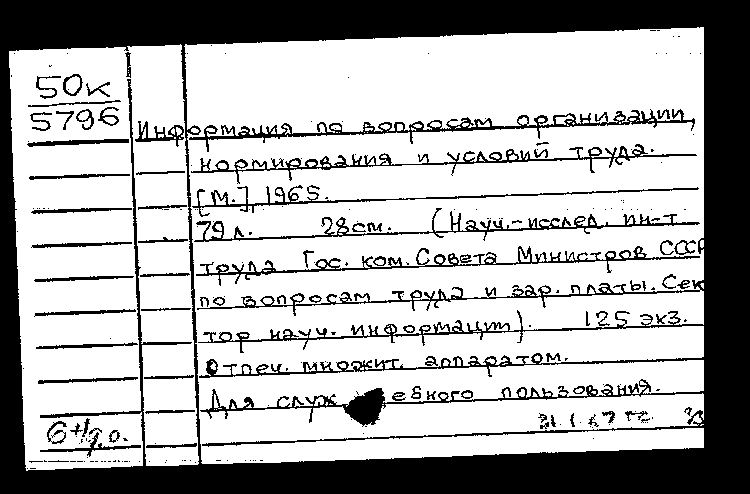 50к
5796
Информация по вопросам организации,
нормирования и условий труда.
[М.], 1965.
79 л. 28 см. (Науч.-исслед. ин-т
труда Гос. ком. Совета Министров СССР
по вопросам труда и зар. платы. Сек
тор науч. информации). 125 экз.
Отпеч. множит. аппаратом.
Для служебного пользования.